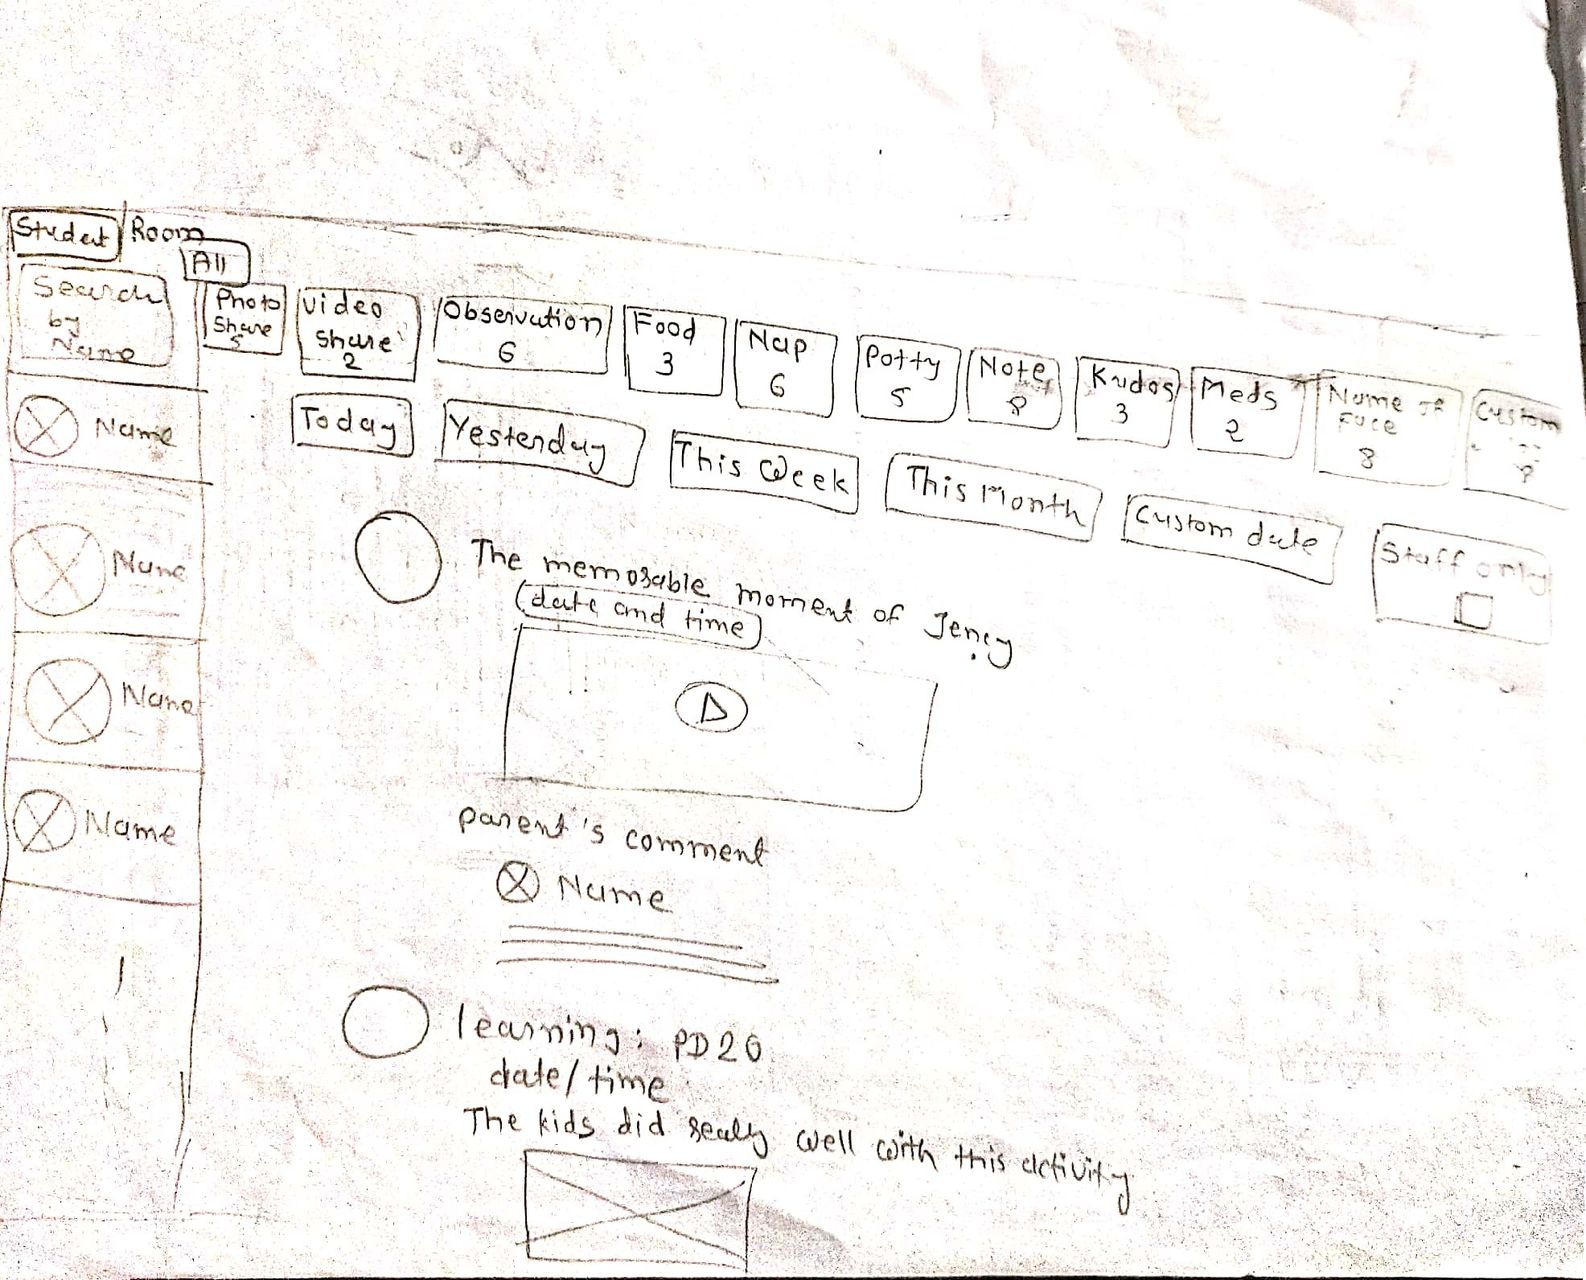 Student Room
All
Search
by
Name
Photo
Share
5
Video
Share
2
Observation
6
Food
3
Nap
6
Potty
5
Note
8
Kudos
3
Meds
2
Name
Face
8
Custom
Today
Yesterday
This Week
This Month
Custom date
Staff only
Name
Name
Name
Name
The memorable moment of Jency
(date and time)
parent's comment
Name
learning: PD20
date/time
The kids did really well with this activity